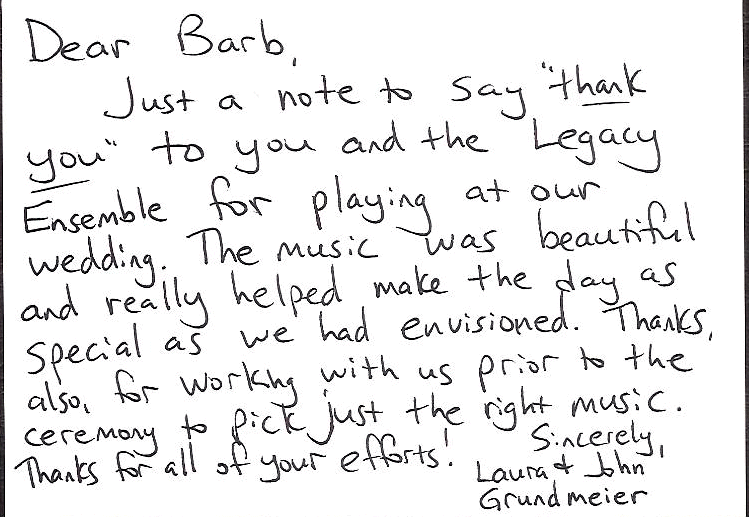 Dear Barb,
Just a note to say "thank
you" to you and the Legacy
Ensemble for playing at our
wedding. The music was beautiful
and really helped make the day as
special as we had envisioned. Thanks,
also, for working with us prior to the
ceremony to pick just the right music.
Thanks for all of your efforts!
Sincerely,
Laura & John
Grundmeier